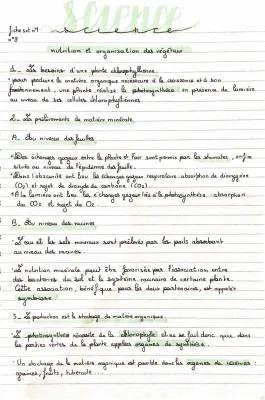 science
fiche svt n°1
n°3
science
nutrition et organisation des végétaux
1 - Les besoins d'une plante chlorophyllienne.
• pour produire la matière organique nécessaire à la croissance et à son
fonctionnement, une plante réalise la photosynthèse en présence de lumière
au niveau de ses cellules chlorophylliennes.
2 - Les prélèvements de matière minérale
A. Au niveau des feuilles
• Des échanges gazeux entre la plante et l'air sont permis par les stomates,
situés au niveau de l'épiderme des feuilles.
• Dans l'obscurité ont lieu les échanges gazeux respiratoires absorption de dioxygène
(O2) et rejet de dioxyde de carbone (CO2)
• A la lumière ont lieu les échanges gazeux liés à la photosynthèse : absorption
du CO2 et rejet du O2.
B. Au niveau des racines
• L'eau et les sels minéraux sont prélevés par les poils absorbant
au niveau des racines
• La nutrition minérale peut être favorisée par l'association entre
des bactéries du sol et le système racinaire de certaine plante.
Cette association, bénéfique pour les deux partenaires, est appelée
symbiose
3 - La production et le stockage de matière organique
• La photosynthèse nécessite de la chlorophylle et ne se fait donc que dans
les parties vertes de la plante appelées organes de synthèse.
• Un stockage de la matière organique est possible dans les organes de réserves :
graines, fruits, tubercule ...